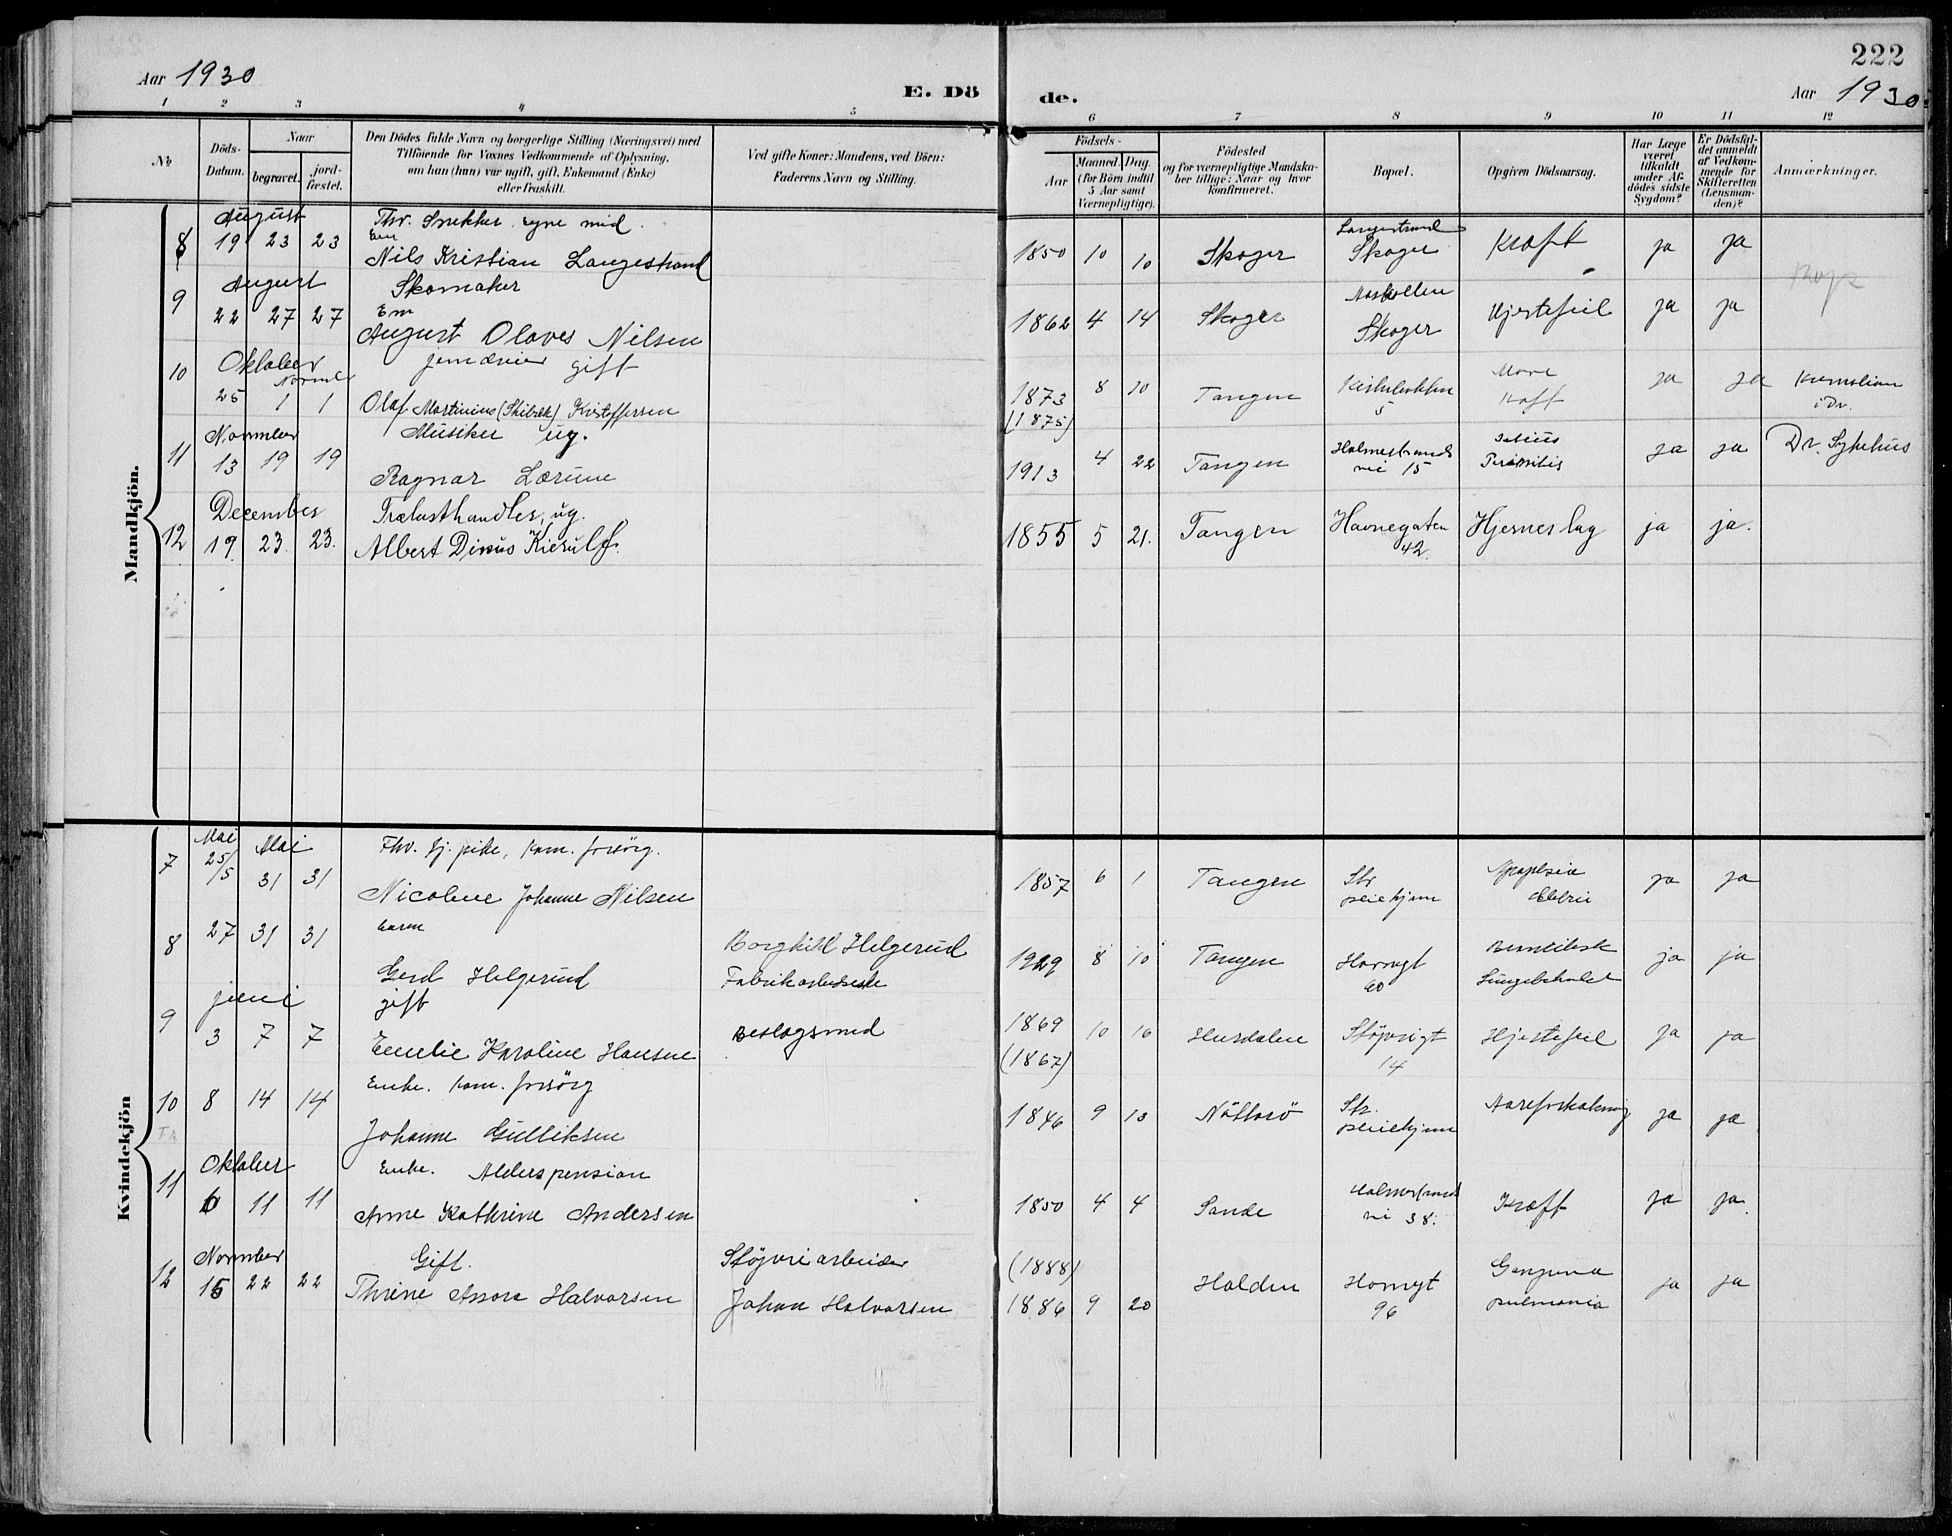 Aar 1930
E. Dö
de.
222
Aar 1930.
1 2 3 4 5 6 7 8 9 10 11 12
No
Döds-
Datum.
Naar
begravet.
jord-
fæstet.
Den Dödes fulde Navn og borgerlige Stilling (Næringsvei) med
Tilföiende for Voxnes Vedkommende af Oplysning,
om han (hun) var ugift, gift, Enkemand (Enke)
eller fraskilt.
Ved gifte Koner: Mandens, ved Börn:
Faderens Navn og Stilling.
Födsels-
Aar
Maaned.
Dag.
(for Börn indtil
5 Aar samt
Værnepligtige).
Födested
og for værnepligtige Mandska-
ber tillige: Naar og hvor
konfirmeret.
Bopæl.
Opgiven Dödsaarsag.
Har Læge
været
tilkaldt
under Af-
dødes sidste
Sygdom?
Er Dödsfal-
det anmeldt
af Vedkom-
mende for
Skifteretten
(Lensman-
den)?
Anmærkninger.
Mandkjön.
August Fhv. Snekker, egne mid. Langestrand
8 19 23 23 Em Nils Kristian Langestrand 1850 10 10 Skoger Skoger Kræft ja ja
August Skomaker
9 22 27 27 Em August Olaves Nilsen 1862 4 14 Skoger Skoger Hjertefeil ja ja
Oktober gift
10 25 November 1 1 Olaf Martinius (Skibæk) Kristoffersen 1873 8 10 Tangen 5 Mave Kræft ja ja
(1875)
i Dr.
November Musiker ug.
11 13 19 19 Ragnar Lærum 1913 4 22 Tangen Holmestrands vei 15 ja ja Dr. Sykehus
December Trælasthandler, ug.
12 19. 23. 23. Albert Dinus Kierulf. 1855 5 21. Tangen Havnegaten 42. Hjerneslag ja ja.
Kvindekjön
Mai Mai Fhv. tj. pike, kom. forsörg.
7 25/5 31 31 Nicoline Johanne Nilsen 1857 6 1 Tangen Str pleiehjem Apoplexia ja ja
8 27 31 31 barn Borghild Helgerud
Gerd Helgerud Fabrikarbeiderske 1929 8 10 Tangen Havnegt 60 ja ja
juni gift
9 3 7 7 Emelie Karoline Hansen Beslagsmed 1869 10 16 Støperigt 14 Hjertefeil ja ja
(1867)
Enke. kom. forsörg
10 8 14 14 Johanne Gulliksen 1846 9 13 Nötterö Str. pleiehjem Aareforkalkning ja ja
Oktober Enke. Alderspension
11 6 11 11 Anne Kathrine Andersen 1850 4 4 Sande Holmestrands vei 38. Kræft ja ja.
November Gift. Stöperiarbeider (1888)
12 15 22 22 Thrine Halvorsen Johan Halvorsen 1886 9 20 Halden Havnegt 96 pulmonia ja ja